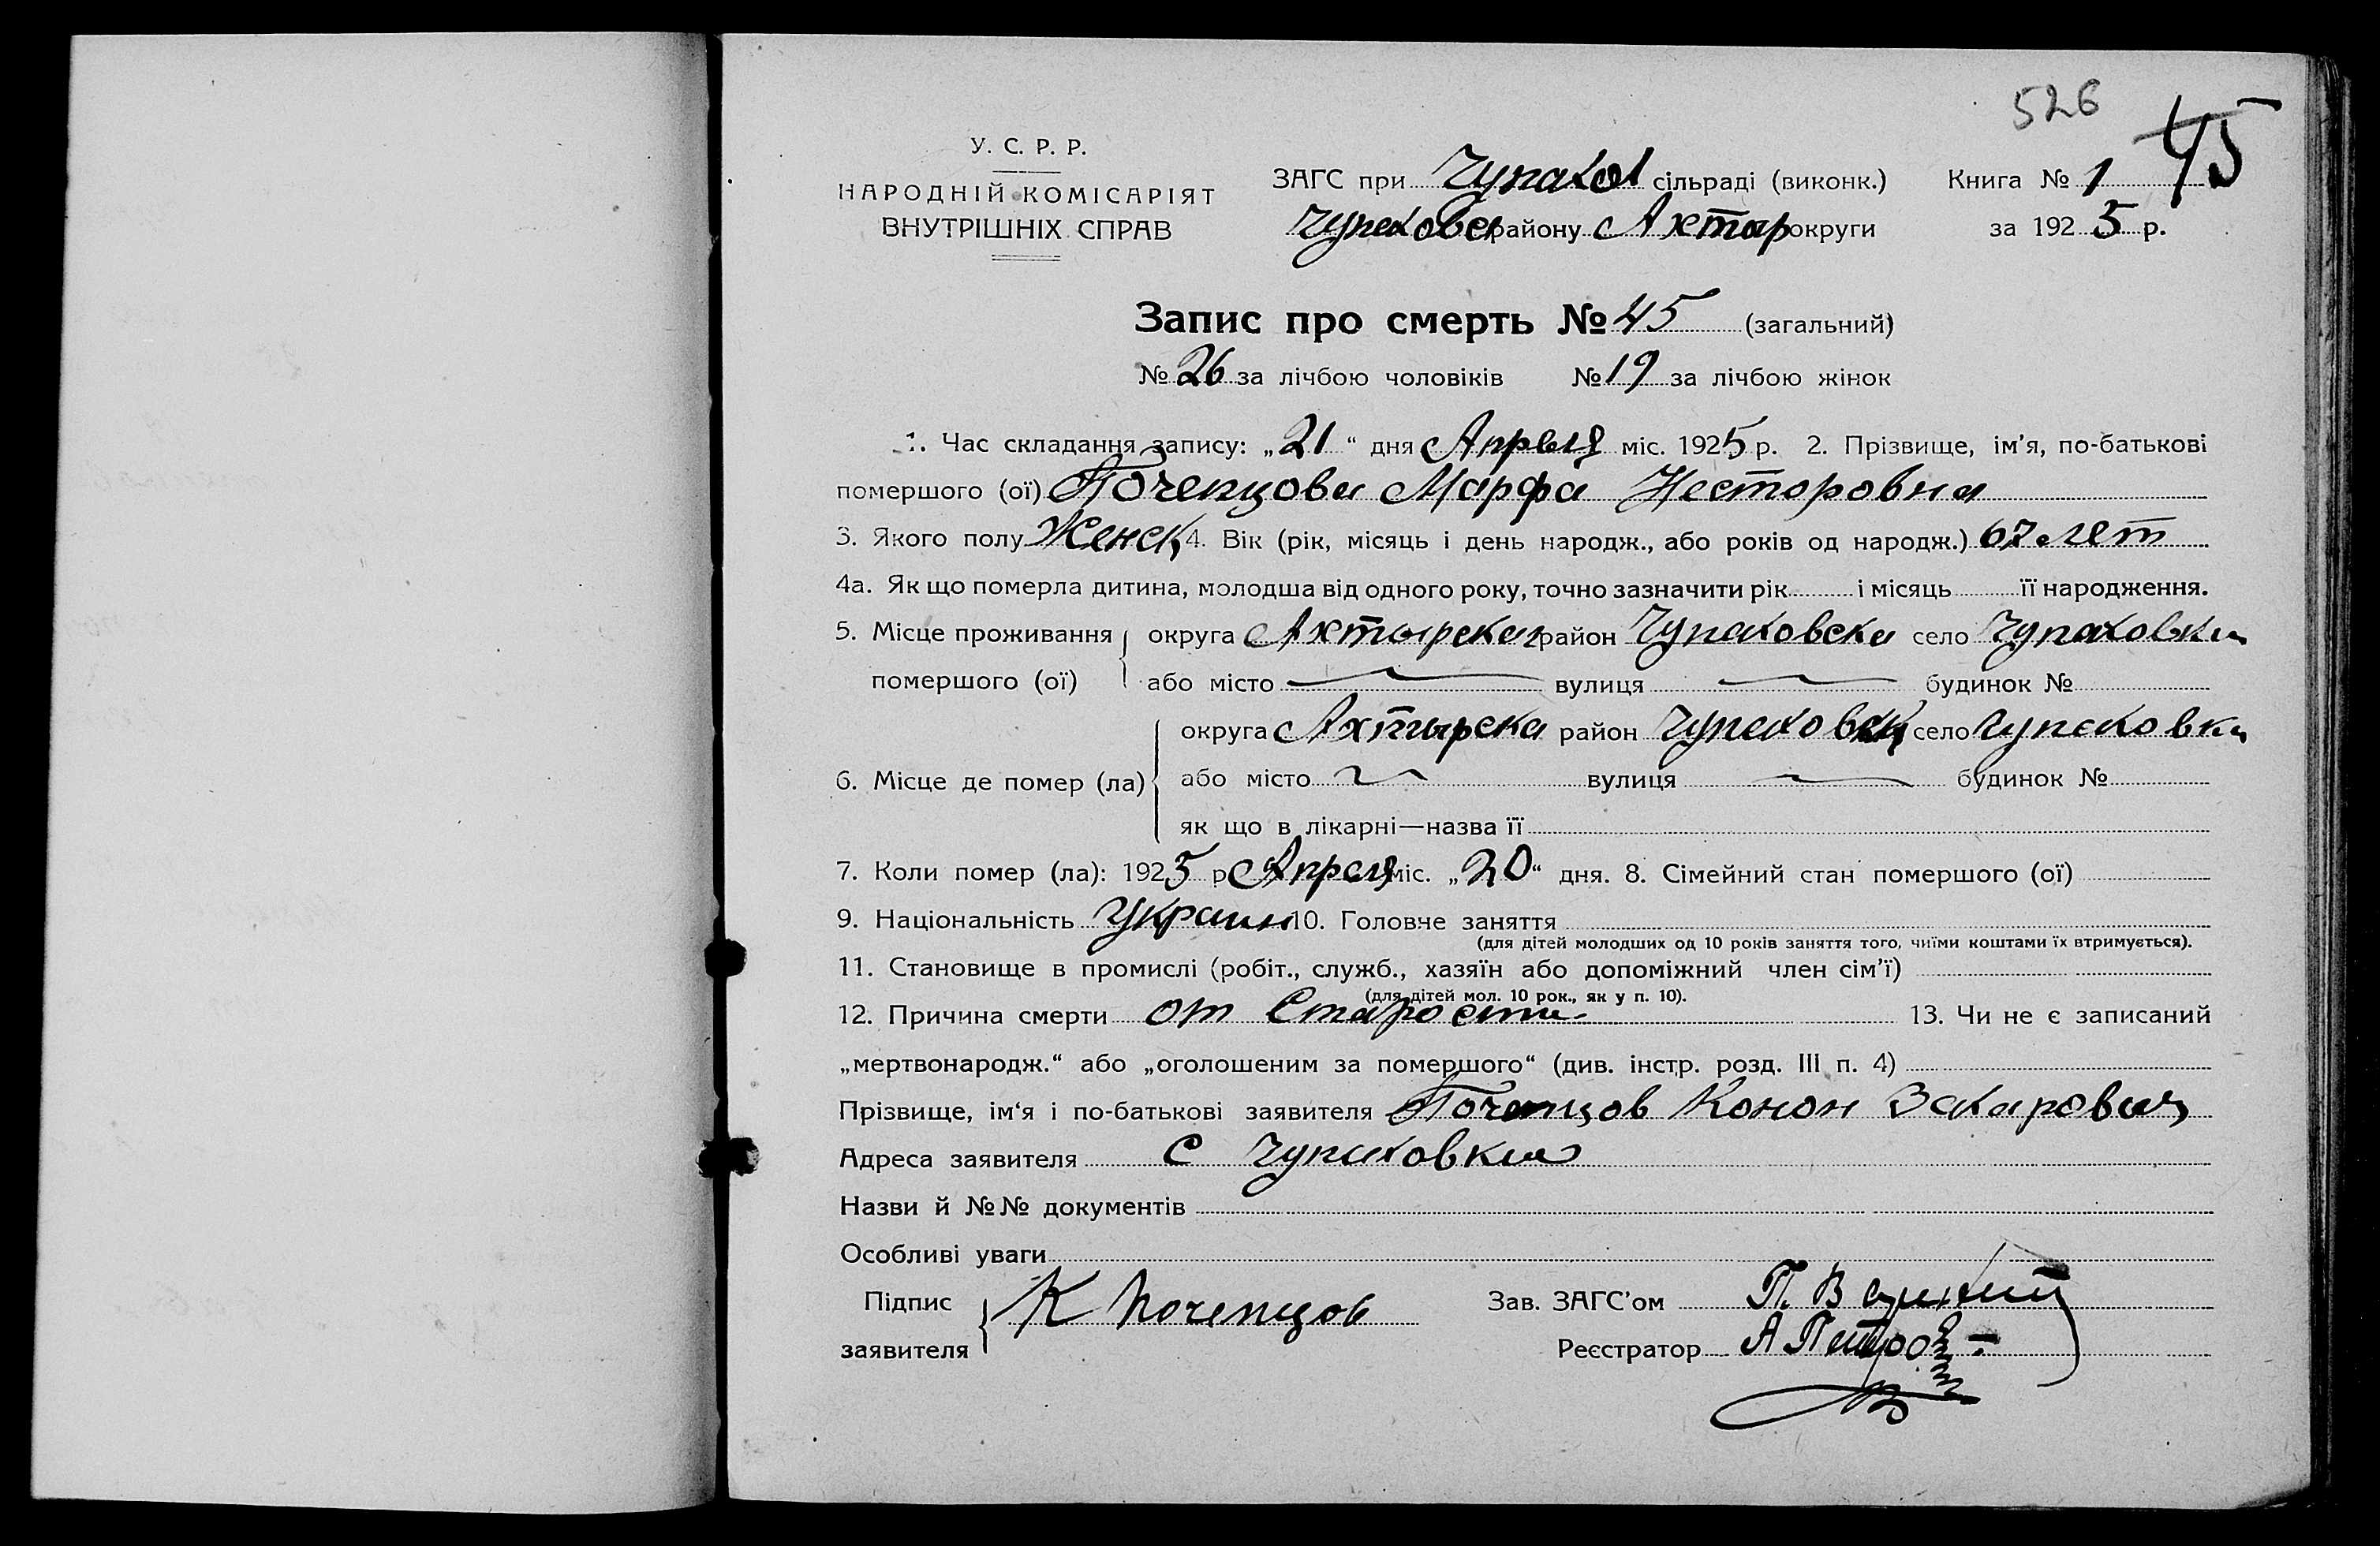 526
45
У. С. Р. Р.
НАРОДНІЙ КОМІСАРІЯТ
ВНУТРІШНІХ СПРАВ
ЗАГС при Чупахов сільраді (виконк.) Книга № 1
Чупаховск району Ахтыр округи за 1925 р.
Запис про смерть № 45 (загальний)
№ 26 за лічбою чоловіків № 19 за лічбою жінок
1. Час складання запису: „21“ дня Апреля міс. 1925 р. 2. Прізвище, ім’я, по-батькові
помершого (ої) Почепцова Марфа Несторовна
3. Якого полу Женск 4. Вік (рік, місяць і день народж., або років од народж.) 67 лет
4а. Як що померла дитина, молодша від одного року, точно зазначити рік і місяць її народження.
5. Місце проживання округа Ахтырская район Чупаховска село Чупаховка
помершого (ої) або місто вулиця будинок №
округа Ахтырска район Чупаховск село Чупаховка
6. Місце де помер (ла) або місто вулиця будинок №
як що в лікарні—назва її
7. Коли помер (ла): 1925 р Апреля міс. „20“ дня. 8. Сімейний стан помершого (ої)
9. Національність Украин 10. Головне заняття
(для дітей молодших од 10 років заняття того, чиїми коштами їх втримується).
11. Становище в промислі (робіт., служб., хазяїн або допоміжний член сім’ї)
(для дітей мол. 10 рок., як у п. 10).
12. Причина смерти от Старости 13. Чи не є записаний
„мертвонародж.“ або „оголошеним за помершого“ (див. інстр. розд. III п. 4)
Прізвище, ім‘я і по-батькові заявителя Почепцов Конон Захарович
Адреса заявителя С Чупаховка
Назви й №№ документів
Особливі уваги
Підпис К Почепцов Зав. ЗАГС’ом П.
заявителя Реєстратор А Петров